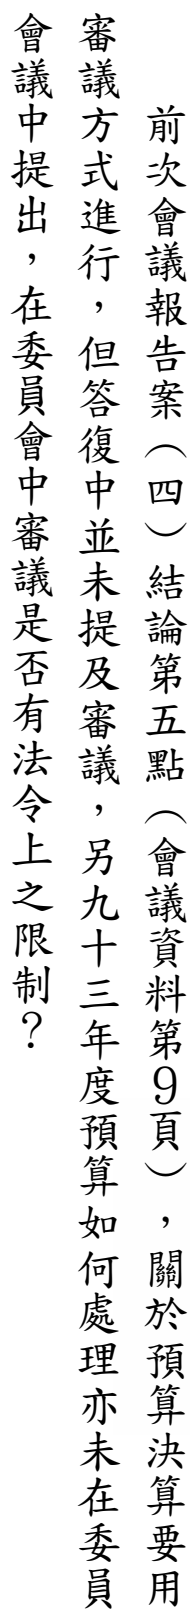 前次會議報告案（四）結論第五點（會議資料第9頁），關於預算決算要用
審議方式進行，但答復中並未提及審議，另九十三年度預算如何處理亦未在委員
會議中提出，在委員會中審議是否有法令上之限制？